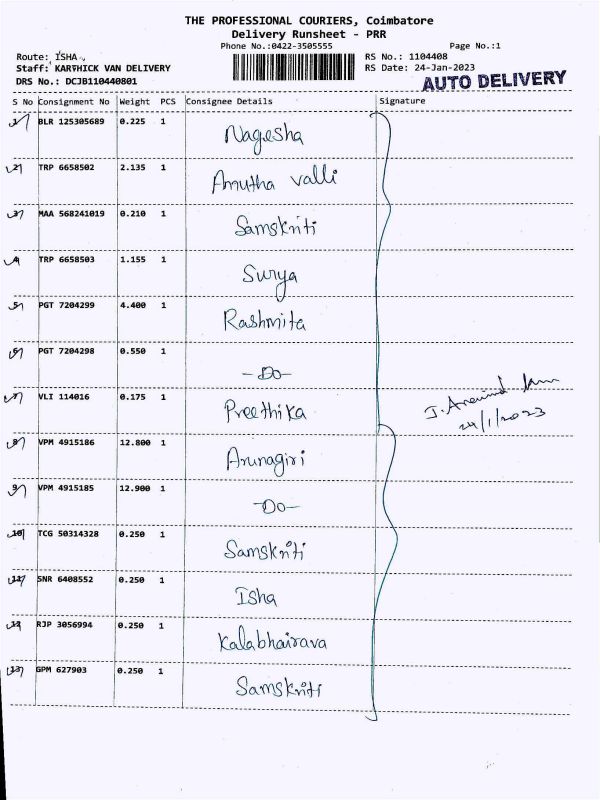 THE PROFESSIONAL COURIERS, Coimbatore
Delivery Runsheet - PRR
Phone No.:0422-3505555 Page No.:1
Route: ISHA RS No.: 1104408
Staff: KARTHICK VAN DELIVERY RS Date: 24-Jan-2023
DRS No.: DCJB110440801 AUTO DELIVERY
S No Consignment No Weight PCS Consignee Details Signature
1 BLR 125305689 0.225 1 Nagesha
2 TRP 6658502 2.135 1 Amutha valli
3 MAA 568241019 0.210 1 Samskriti
4 TRP 6658503 1.155 1 Surya
5 PGT 7204299 4.400 1 Rashmita
6 PGT 7204298 0.550 1 -Do-
7 VLI 114016 0.175 1 Preethika
J. Aravind
24/1/2023
8 VPM 4915186 12.800 1 Arunagiri
9 VPM 4915185 12.900 1 -Do-
10 TCG 50314328 0.250 1 Samskriti
11 SNR 6408552 0.250 1 Isha
12 RJP 3056994 0.250 1 Kalabhairava
13 GPM 627903 0.250 1 Samskriti